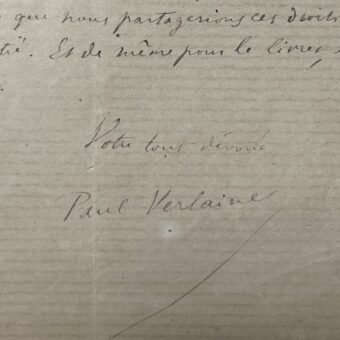 que nous partagerions ces droits
tié. Et de même pour le livre,
Votre tout dévoué
Paul Verlaine